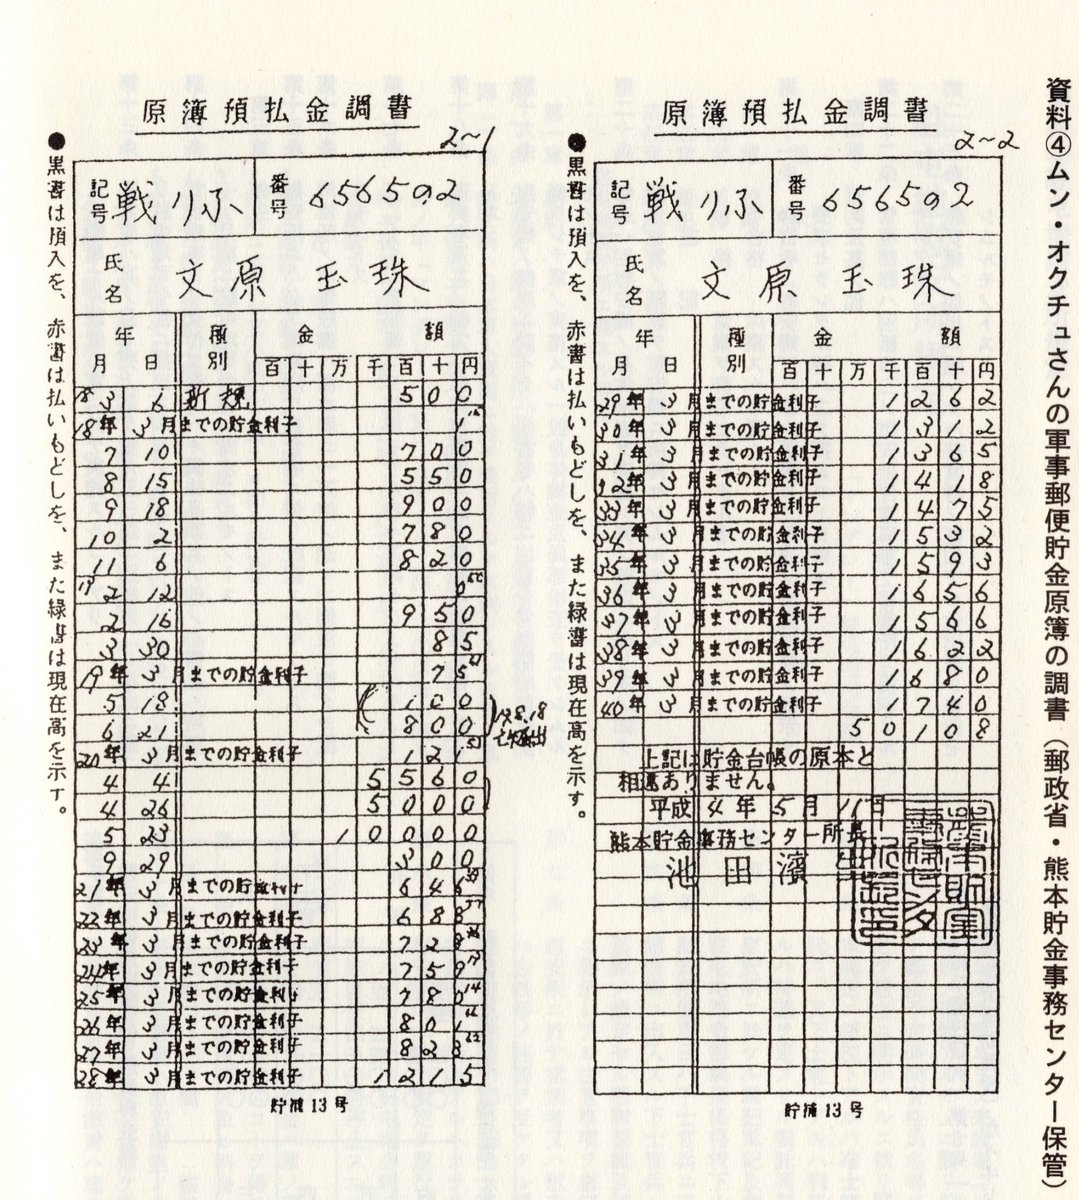 資料④ムン・オクチュさんの軍事郵便貯金原簿の調書（郵政省・熊本貯金事務センター保管）
原簿預払金調書
2~1
●黒書は預入を、赤書は払いもどしを、また緑書は現在高を示す。
記号 戦りふ 番号 6565の2
氏名 文原 玉珠
年月日 種別 金額
百十万千百十円
18 3 6 新規 500
18年3月までの貯金利子 1
7 10 700
8 15 550
9 18 900
10 2 780
11 6 820
19 2 12 0
2 16 950
3 30 85
19年3月までの貯金利子 75
5 18 100
6 21 800
20年3月までの貯金利子 121
4 4 5560
4 26 5000
5 23 10000
9 29 300
21年3月までの貯金利子 646
22年3月までの貯金利子 688
23年3月までの貯金利子 728
24年3月までの貯金利子 759
25年3月までの貯金利子 780
26年3月までの貯金利子 801
27年3月までの貯金利子 823
28年3月までの貯金利子 1215
貯減13号
原簿預払金調書
2~2
●黒書は預入を、赤書は払いもどしを、また緑書は現在高を示す。
記号 戦りふ 番号 6565の2
氏名 文原 玉珠
年月日 種別 金額
百十万千百十円
29年3月までの貯金利子 1262
30年3月までの貯金利子 1312
31年3月までの貯金利子 1365
32年3月までの貯金利子 1418
33年3月までの貯金利子 1475
34年3月までの貯金利子 1532
35年3月までの貯金利子 1593
36年3月までの貯金利子 1656
37年3月までの貯金利子 1566
38年3月までの貯金利子 1622
39年3月までの貯金利子 1680
40年3月までの貯金利子 1740
50108
上記は貯金台帳の原本と
相違ありません。
平成4年5月11日
熊本貯金事務センター所長
池田濱
貯減13号